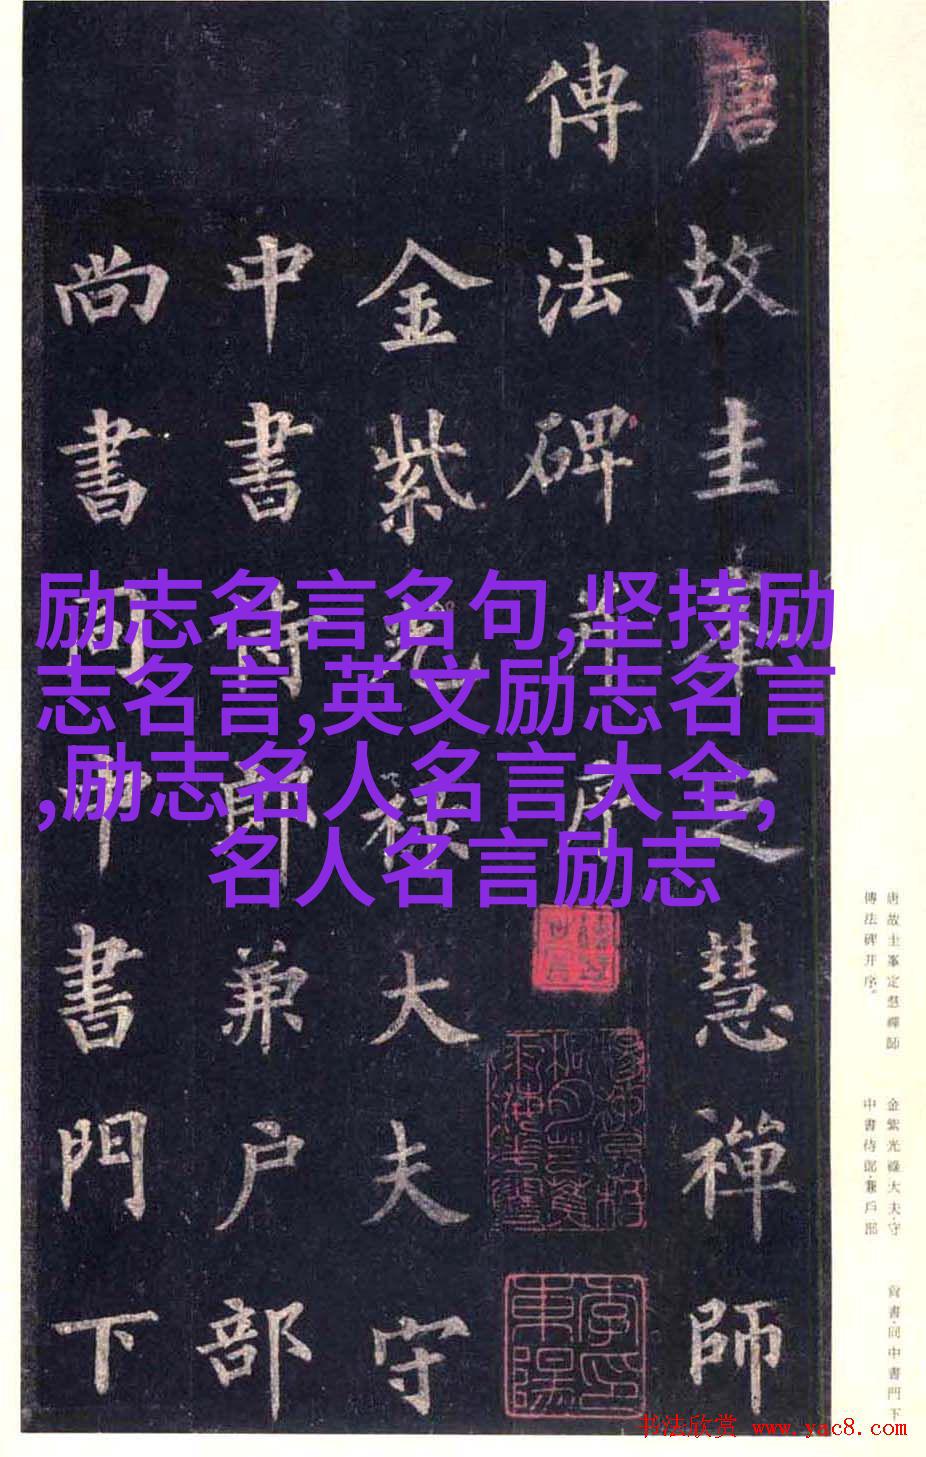 唐故圭峯定慧禪師
傳法碑并序
金紫光祿大夫守
中書侍郎兼户部
尚書同中書門下
励志名言名句,坚持励
志名言,英文励志名言
,励志名人名言大全,
名人名言励志
唐故圭峯定慧禪師
傳法碑并序。
金紫光祿大夫·守
中書侍郎·兼戶部
尚書·同中書門下
书法欣赏 www.yac8.com